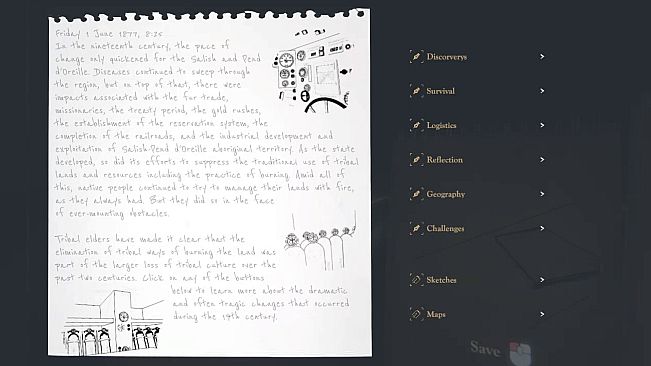 Friday 1 June 1877, 8:25
In the nineteenth century, the pace of
change only quickened for the Salish and Pend
d'Oreille. Diseases continued to sweep through
the region, but on top of that, there were
impacts associated with the fur trade,
missionaries, the treaty period, the gold rushes,
the establishment of the reservation system, the
completion of the railroads, and the industrial development and
exploitation of Salish-Pend d'Oreille aboriginal territory. As the state
developed, so did its efforts to suppress the traditional use of tribal
lands and resources including the practice of burning. Amid all of
this, native people continued to try to manage their lands with fire,
as they always had. But they did so in the face
of ever-mounting obstacles.
Tribal elders have made it clear that the
elimination of tribal ways of burning the land was
part of the larger loss of tribal culture over the
past two centuries. Click on any of the buttons
below to learn more about the dramatic
and often tragic changes that occurred
during the 19th century.
Discorverys
Survival
Logistics
Reflection
Geography
Challenges
Sketches
Maps
Save